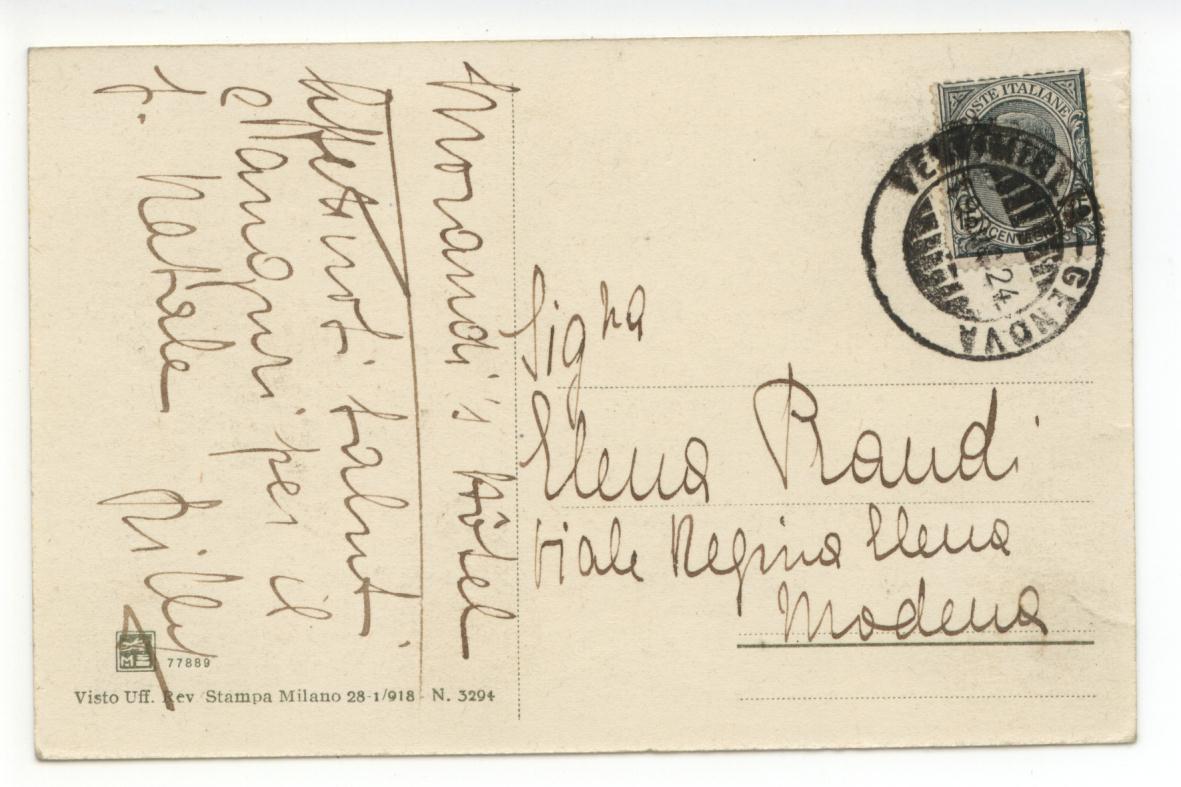 Morandi's Hôtel
Affettuosi saluti
e auguri per il
S. Natale
POSTE ITALIANE
15 CENTESIMI 15
VENTIMIGLIA - GENOVA
24
Sig.na
Elena Randi
Viale Regina Elena
Modena
77889
Visto Uff. Rev Stampa Milano 28-1/918 - N. 3294